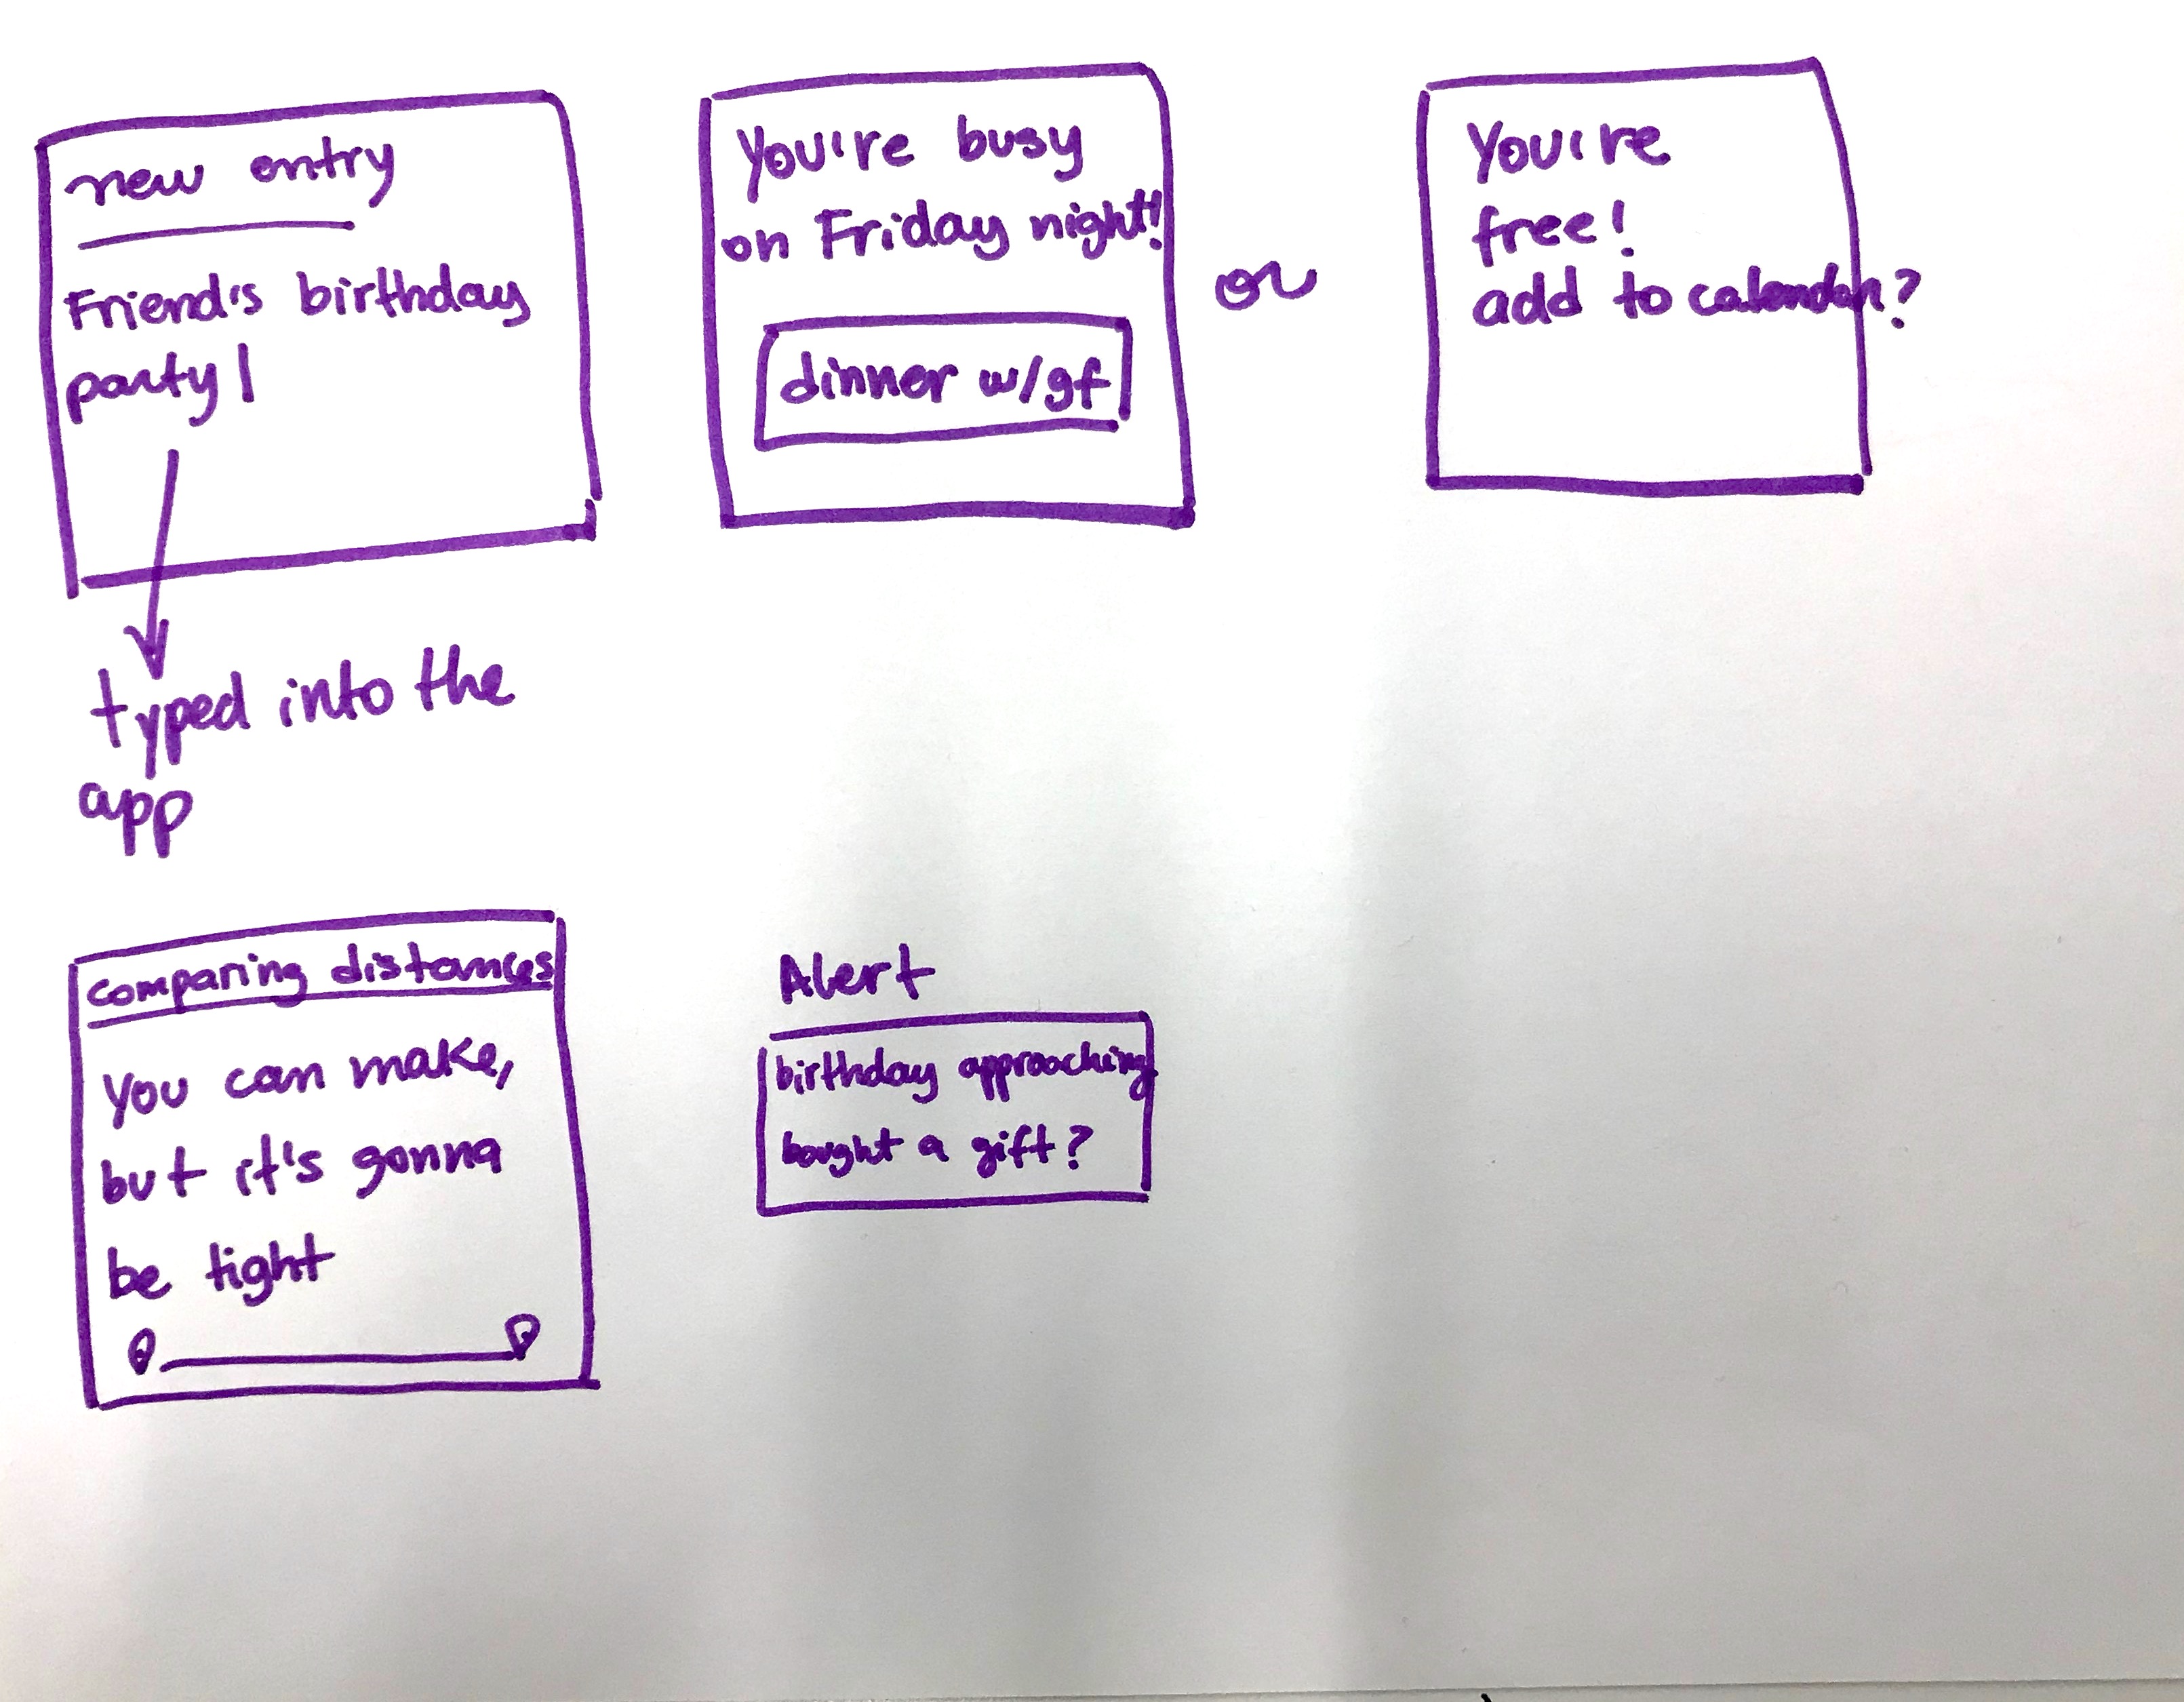 new entry
Friend's birthday
party|
typed into the
app
You're busy
on Friday night!
dinner w/gf
or
You're
free!
add to calendar?
comparing distances
you can make,
but it's gonna
be tight
Alert
birthday approaching
bought a gift?